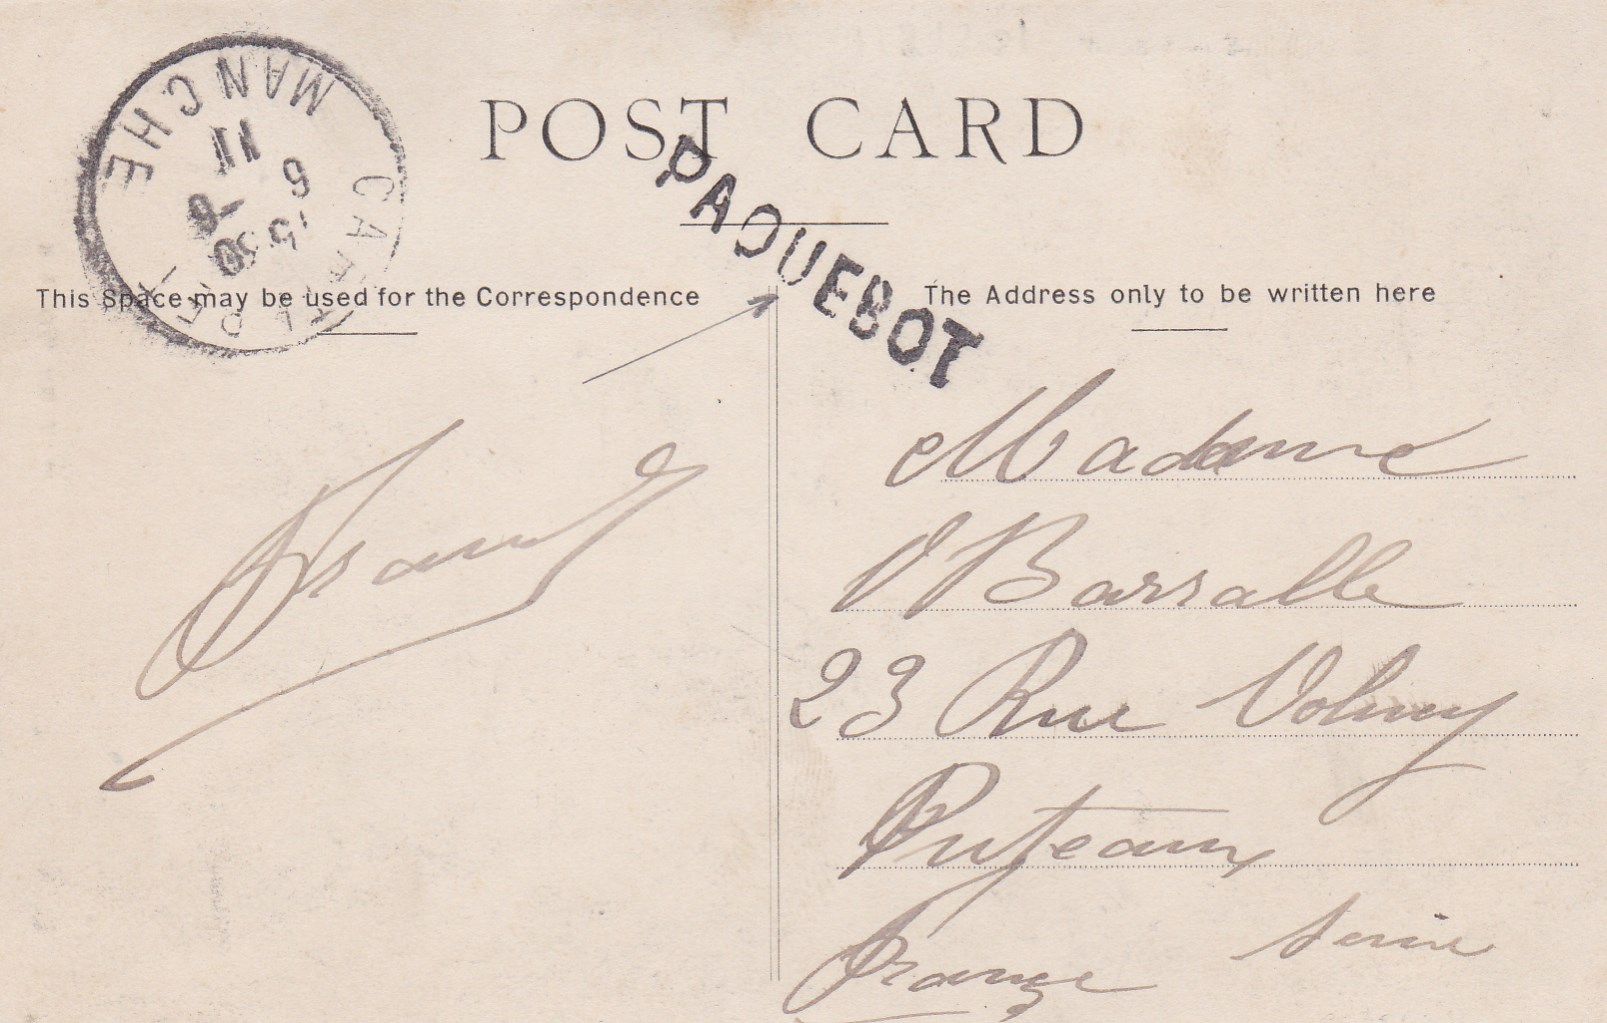 POST CARD
PAQUEBOT
MANCHE
CARTERET
15 30
6 - 9
11
This Space may be used for the Correspondence
The Address only to be written here
Madame
V Barralle
23 Rue Volney
Puteaux
Seine
France